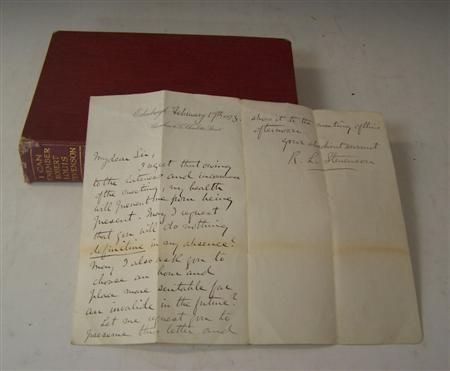 I CAN
REMEMBER
ROBERT
LOUIS
STEVENSON
Edinburgh February 17th
My dear Sir,
I regret that owing
to the lateness and
of the meeting, my health
will prevent me from being
present. May I request
that you will do nothing
definitive in my absence?
May I also ask you to
choose an hour and
place more suitable for
an invalid in the future?
Let me request you to
preserve this letter and
show it to the meeting of this
afternoon.
Your obedient servant
R. L. Stevenson